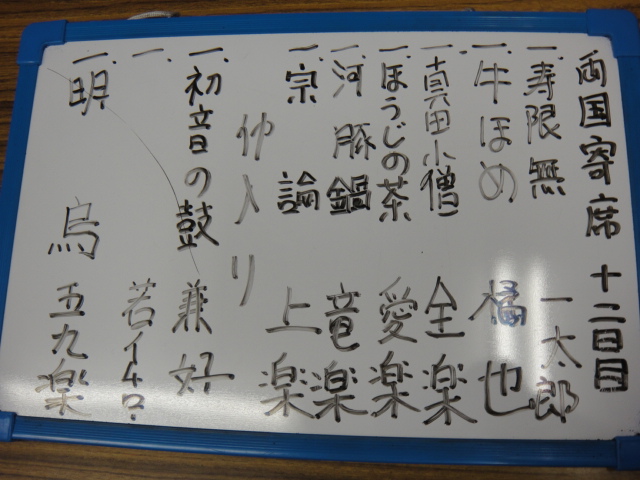 両国寄席 十二日目
一、寿限無 一太郎
一、牛ほめ 橘也
一、真田小僧 全楽
一、ほうじの茶 愛楽
一、河豚鍋 竜楽
一、宗論 上楽
仲入り
一、初音の鼓 兼好
一、 若イ4号
一、明烏 五九楽